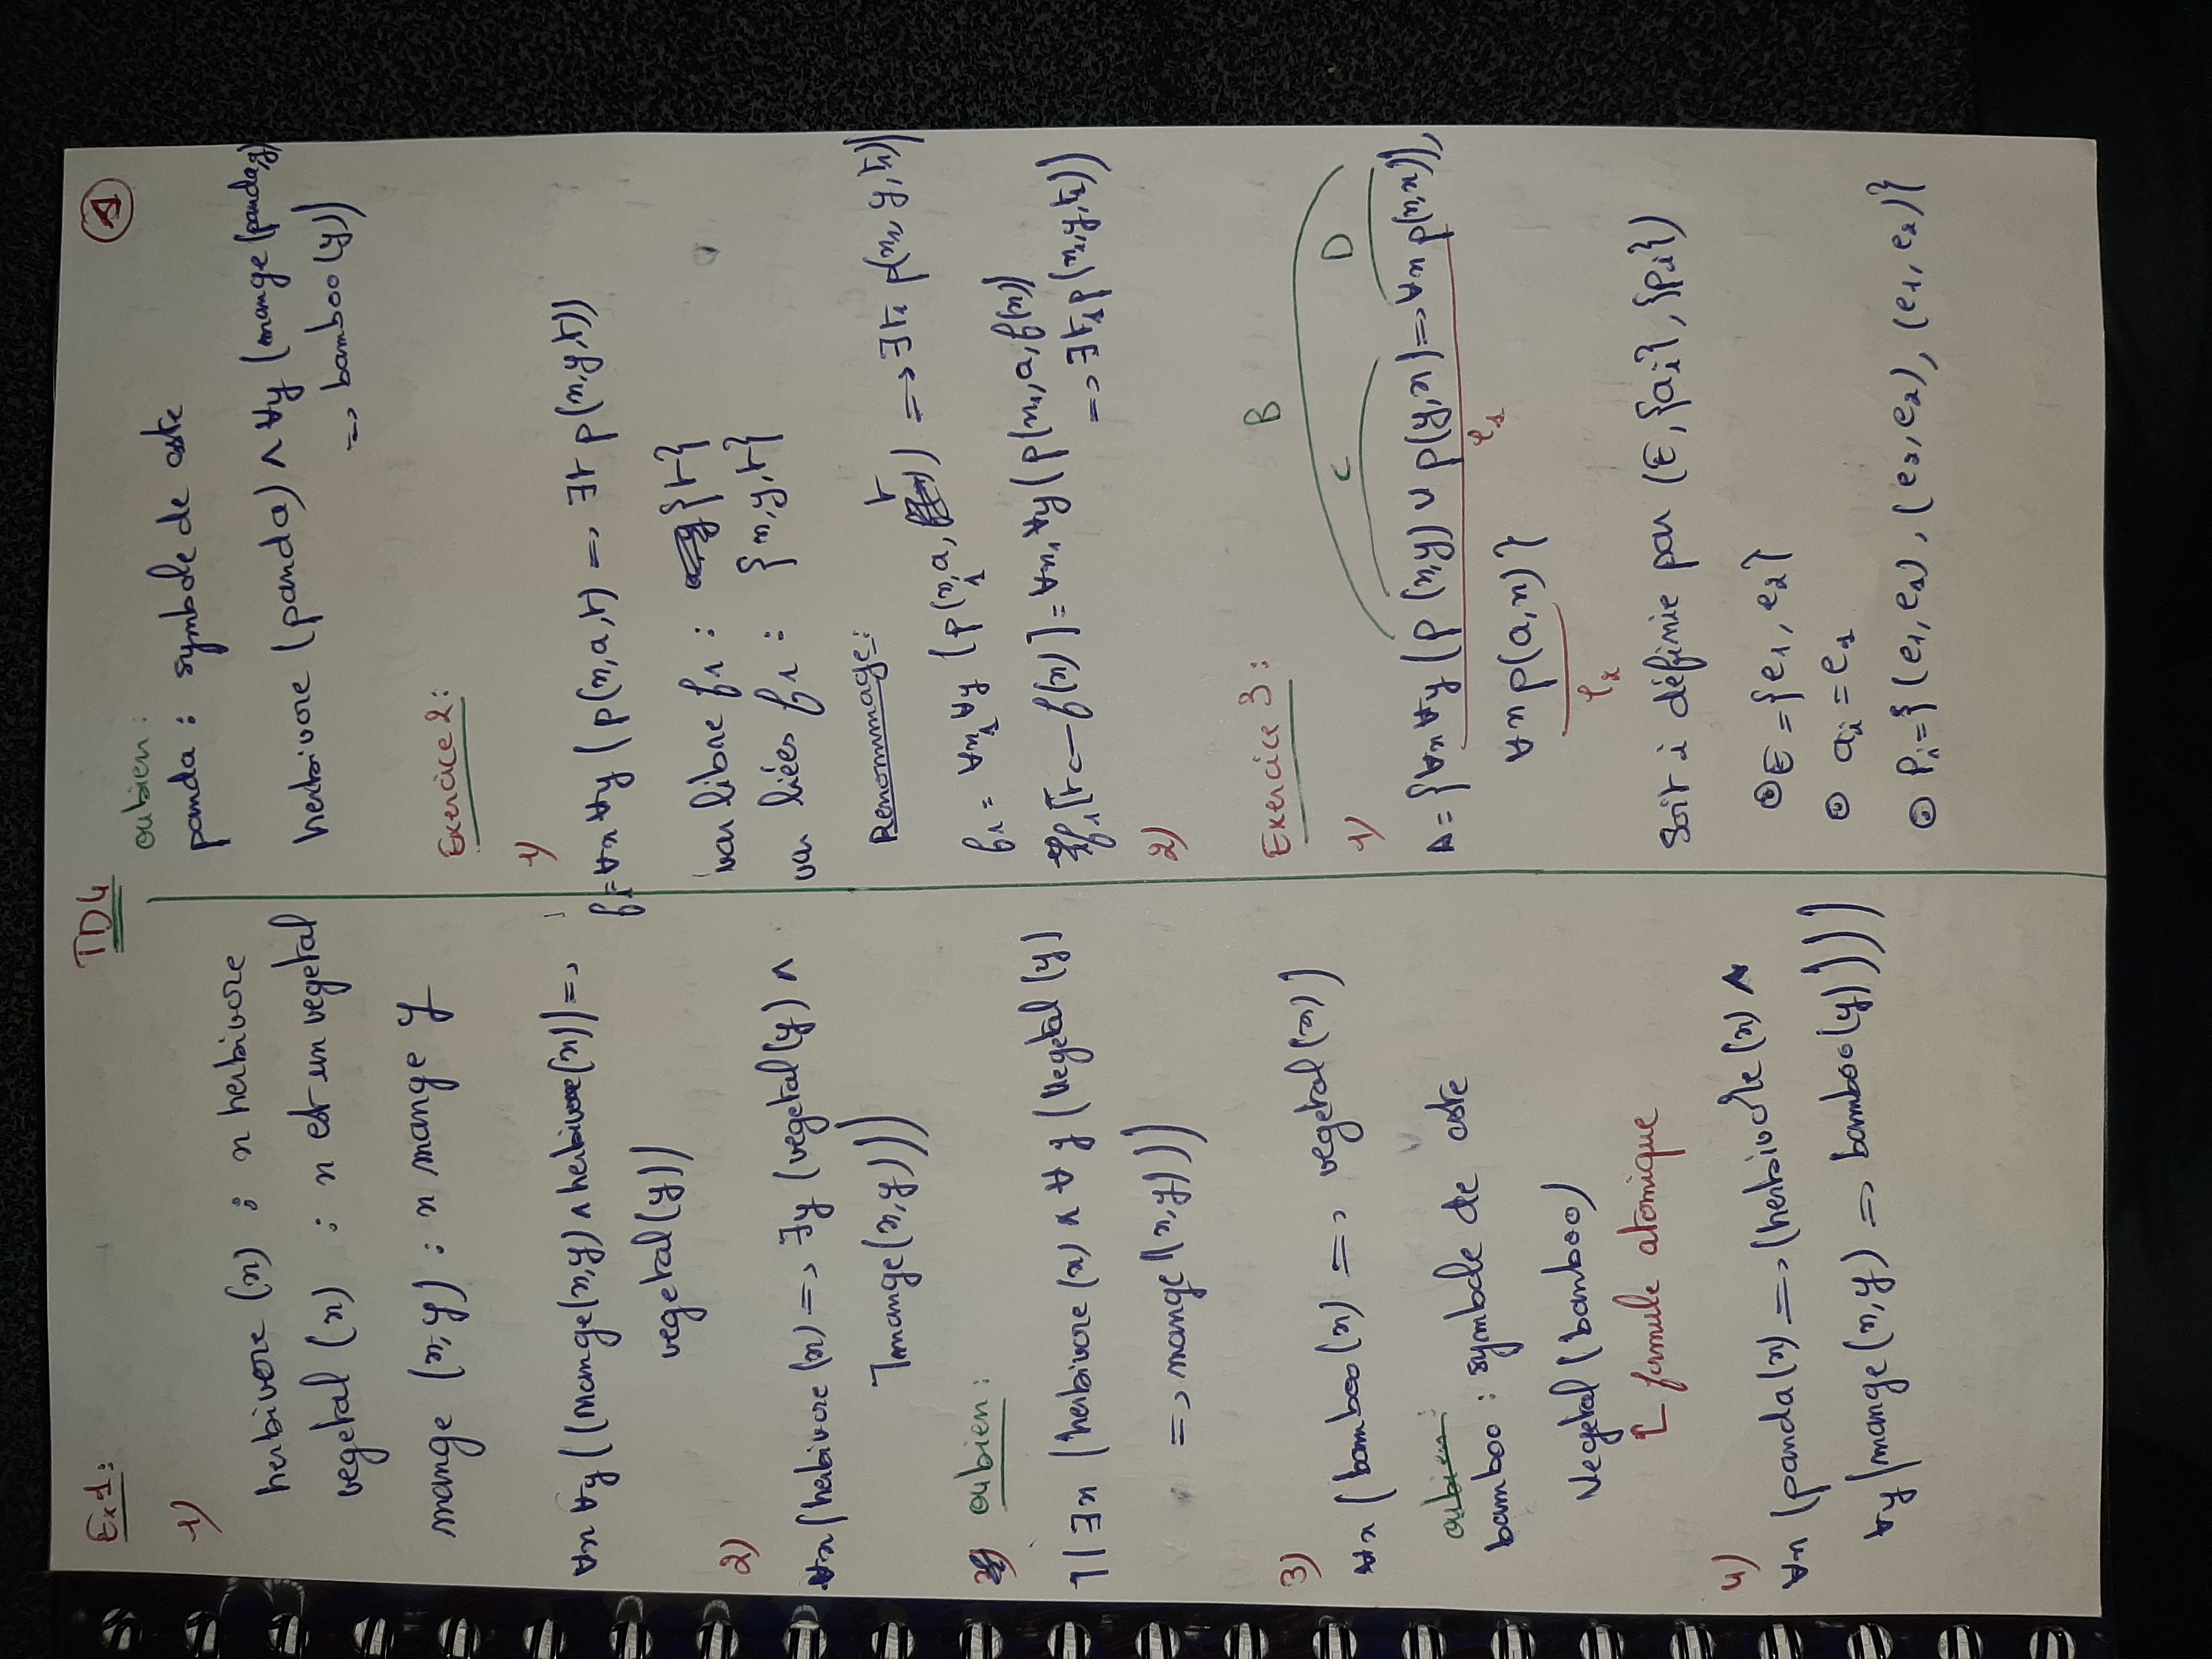 TD4
1
Ex1:
1)
herbivore (x) : x herbivore
vegetal (x) : x est un vegetal
mange (x,y) : x mange y
∀x ∀y ((mange(x,y) ∧ herbivore(x)) =>
vegetal(y))
2)
∀x (herbivore (x) => ∃y (vegetal(y) ∧
⅂mange(x,y)))
oubien :
⅂(∃x (herbivore (x) ∧ ∀y (Vegetal (y)
=> mange (x,y)))
3)
∀x (bamboo(x) => vegetal(x))
oubien :
bamboo : symbole de cste
Vegetal (bamboo)
formule atomique
4)
∀x (panda(x) => (herbivore (x) ∧
∀y (mange(x,y) => bamboo(y))))
oubien :
panda : symbole de cste
herbivore (panda) ∧ ∀y (mange (panda,y)
=> bamboo(y))
Exercice 2 :
1)
f1 = ∀x ∀y (p(x,a,t) => ∃t p(x,y,t))
var libre f1 : {t}
var liées f1 : {x,y,t}
Renommage :
f1 = ∀x1 ∀y (p(x1,a,t) => ∃t1 p(x1, y, t1))
f1 [t <- f(x)] = ∀x1 ∀y (p(x1, a, f(x))
=> ∃t1 p(x1,y,t1))
2)
Exercice 3 :
B
C D
1)
A = {∀x ∀y (p (x,y) ∨ p(y,x) => ∀x p(x,x)),
φ1
∀x p(a,x)}
φ2
Soit i définie par (E, {ai}, {Pi})
E = {e1, e2}
ai = e1
Pi = {(e1,e1), (e2,e2), (e1,e2)}